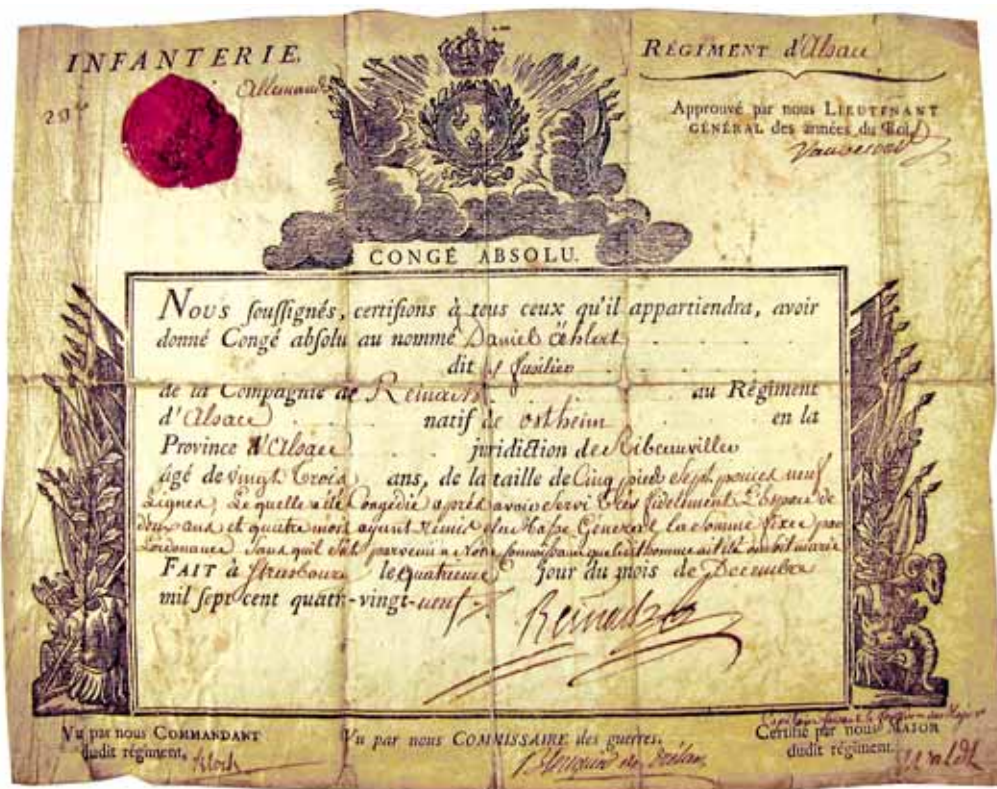 INFANTERIE.
Allemande
RÉGIMENT d'Alsace
Approuvé par nous LIEUTENANT
GÉNÉRAL des armées du Roi
CONGÉ ABSOLU.
NOUS soussignés, certifions à tous ceux qu'il appartiendra, avoir
donné Congé absolu au nommé Daniel
dit fusilier
de la Compagnie de Reinach au Régiment
d'Alsace natif de ostheim en la
Province d'Alsace juridiction de Ribeauviller
âgé de vingt Trois ans, de la taille de Cinq pieds sept pouces neuf
Lignes, Le quelle a été Congédié après avoir servi très fidelment L'Espace de
deux ans et quatre mois ayant Remis a la Masse General la Somme fixée par
Lordonance Sans quil soit parvenu a Notre connoissance que ledit homme ait été marié
FAIT à Strasbourg le quatrieme Jour du mois de Decembre
mil sept cent quatre-vingt-neuf
Reinach
Vu par nous COMMANDANT
dudit régiment,
Vu par nous COMMISSAIRE des guerres.
Certifié par nous MAJOR
dudit régiment.